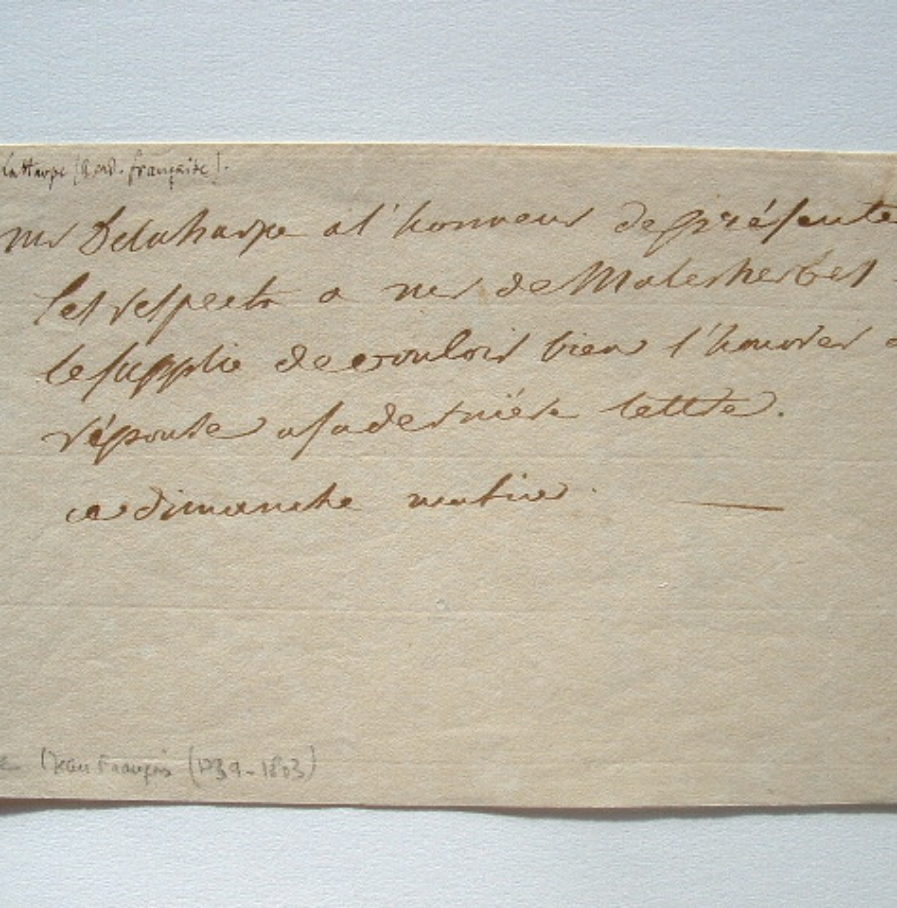 LaHarpe (Acad. française).
mr Delaharpe a l'honneur de présente
ses respects a mr de Malesherbes
le supplie de vouloir bien l'honorer
réponse a sa dernière lettre.
ce dimanche matin.
Jean François (1739-1803)